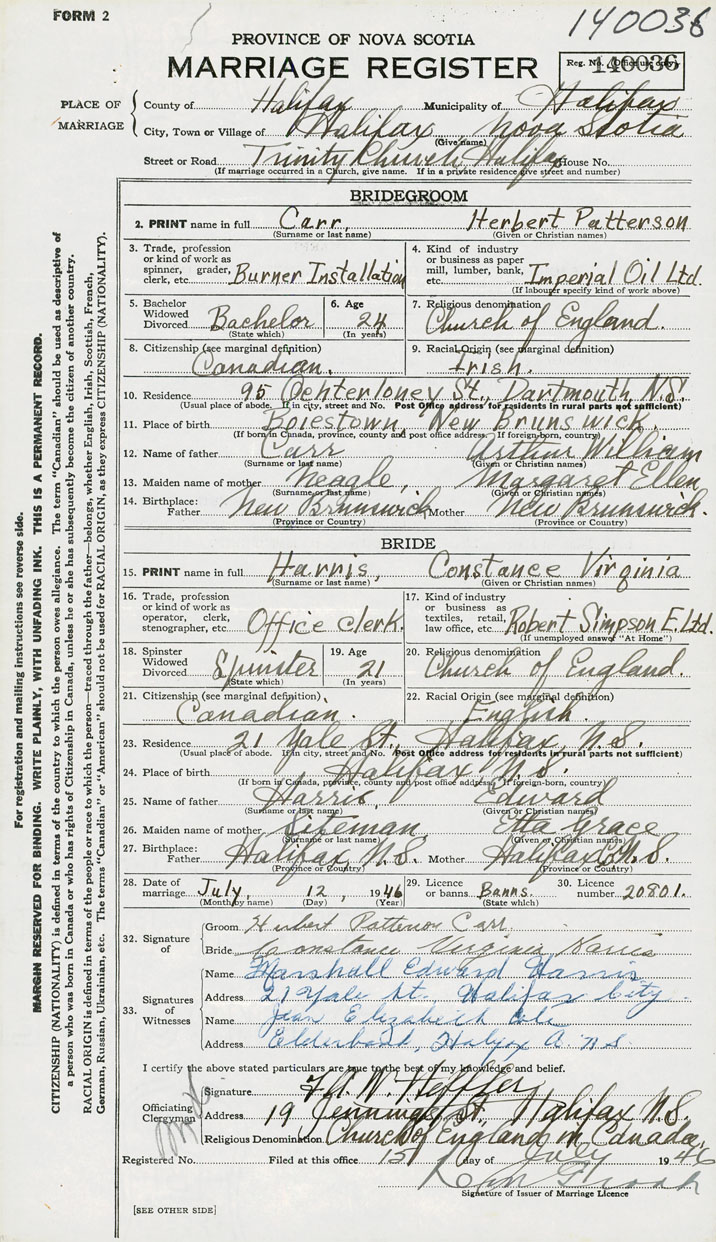 FORM 2
140036
PROVINCE OF NOVA SCOTIA
MARRIAGE REGISTER
Reg. No. (Office use only)
140036
PLACE OF MARRIAGE
County of Halifax Municipality of Halifax
City, Town or Village of Halifax, Nova Scotia
(Give name)
Street or Road Trinity Church, Halifax House No.
(If marriage occurred in a Church, give name. If in a private residence give street and number)
BRIDEGROOM
2. PRINT name in full Carr, Herbert Patterson
(Surname or last name) (Given or Christian names)
3. Trade, profession or kind of work as spinner, grader, clerk, etc. Burner Installation
4. Kind of industry or business as paper mill, lumber, bank, etc. Imperial Oil Ltd.
(If labourer specify kind of work above)
5. Bachelor Widowed Divorced Bachelor
(State which)
6. Age 24
(In years)
7. Religious denomination
Church of England.
8. Citizenship (see marginal definition)
Canadian.
9. Racial Origin (see marginal definition)
Irish.
10. Residence 95 Ochterloney St., Dartmouth, N.S.
(Usual place of abode. If in city, street and No. Post Office address for residents in rural parts not sufficient)
11. Place of birth Boiestown, New Brunswick.
(If born in Canada, province, county and post office address. If foreign-born, country)
12. Name of father Carr Arthur William
(Surname or last name) (Given or Christian names)
13. Maiden name of mother Neagle, Margaret Ellen
(Surname or last name) (Given or Christian names)
14. Birthplace: Father New Brunswick Mother New Brunswick.
(Province or Country) (Province or Country)
BRIDE
15. PRINT name in full Harris, Constance Virginia
(Surname or last name) (Given or Christian names)
16. Trade, profession or kind of work as operator, clerk, stenographer, etc. Office clerk.
17. Kind of industry or business as textiles, retail, law office, etc. Robert Simpson E. Ltd.
(If unemployed answer "At Home")
18. Spinster Widowed Divorced Spinster
(State which)
19. Age 21
(In years)
20. Religious denomination
Church of England.
21. Citizenship (see marginal definition)
Canadian.
22. Racial Origin (see marginal definition)
English.
23. Residence 21 Yale St., Halifax, N.S.
(Usual place of abode. If in city, street and No. Post Office address for residents in rural parts not sufficient)
24. Place of birth Halifax, N.S.
(If born in Canada, province, county and post office address. If foreign-born, country)
25. Name of father Harris, Edward
(Surname or last name) (Given or Christian names)
26. Maiden name of mother Sizeman, Etta Grace
(Surname or last name) (Given or Christian names)
27. Birthplace: Father Halifax, N.S. Mother Halifax, N.S.
(Province or Country) (Province or Country)
28. Date of marriage July, 12, 1946
(Month by name) (Day) (Year)
29. Licence or banns Banns.
(State which)
30. Licence number 20801.
32. Signature of
Groom Herbert Patterson Carr.
Bride Constance Virginia Harris
33. Signatures of Witnesses
Name Marshall Edward Harris
Address 21 Yale St., Halifax City
Name Jean Elizabeth Cole
Address Elderbank, Halifax Co. N.S.
I certify the above stated particulars are true to the best of my knowledge and belief.
Officiating Clergyman
Signature
Address 19 Jennings St., Halifax N.S.
Religious Denomination Church of England in Canada.
Registered No. Filed at this office 15 day of July 1946
Signature of Issuer of Marriage Licence
[SEE OTHER SIDE]
For registration and mailing instructions see reverse side.
MARGIN RESERVED FOR BINDING. WRITE PLAINLY, WITH UNFADING INK. THIS IS A PERMANENT RECORD.
CITIZENSHIP (NATIONALITY) is defined in terms of the country to which the person owes allegiance. The term "Canadian" should be used as descriptive of
a person who was born in Canada or who has rights of Citizenship in Canada, unless he or she has subsequently become the citizen of another country.
RACIAL ORIGIN is defined in terms of the people or race to which the person—traced through the father—belongs, whether English, Irish, Scottish, French,
German, Russian, Ukrainian, etc. The terms "Canadian" or "American" should not be used for RACIAL ORIGIN, as they express CITIZENSHIP (NATIONALITY).